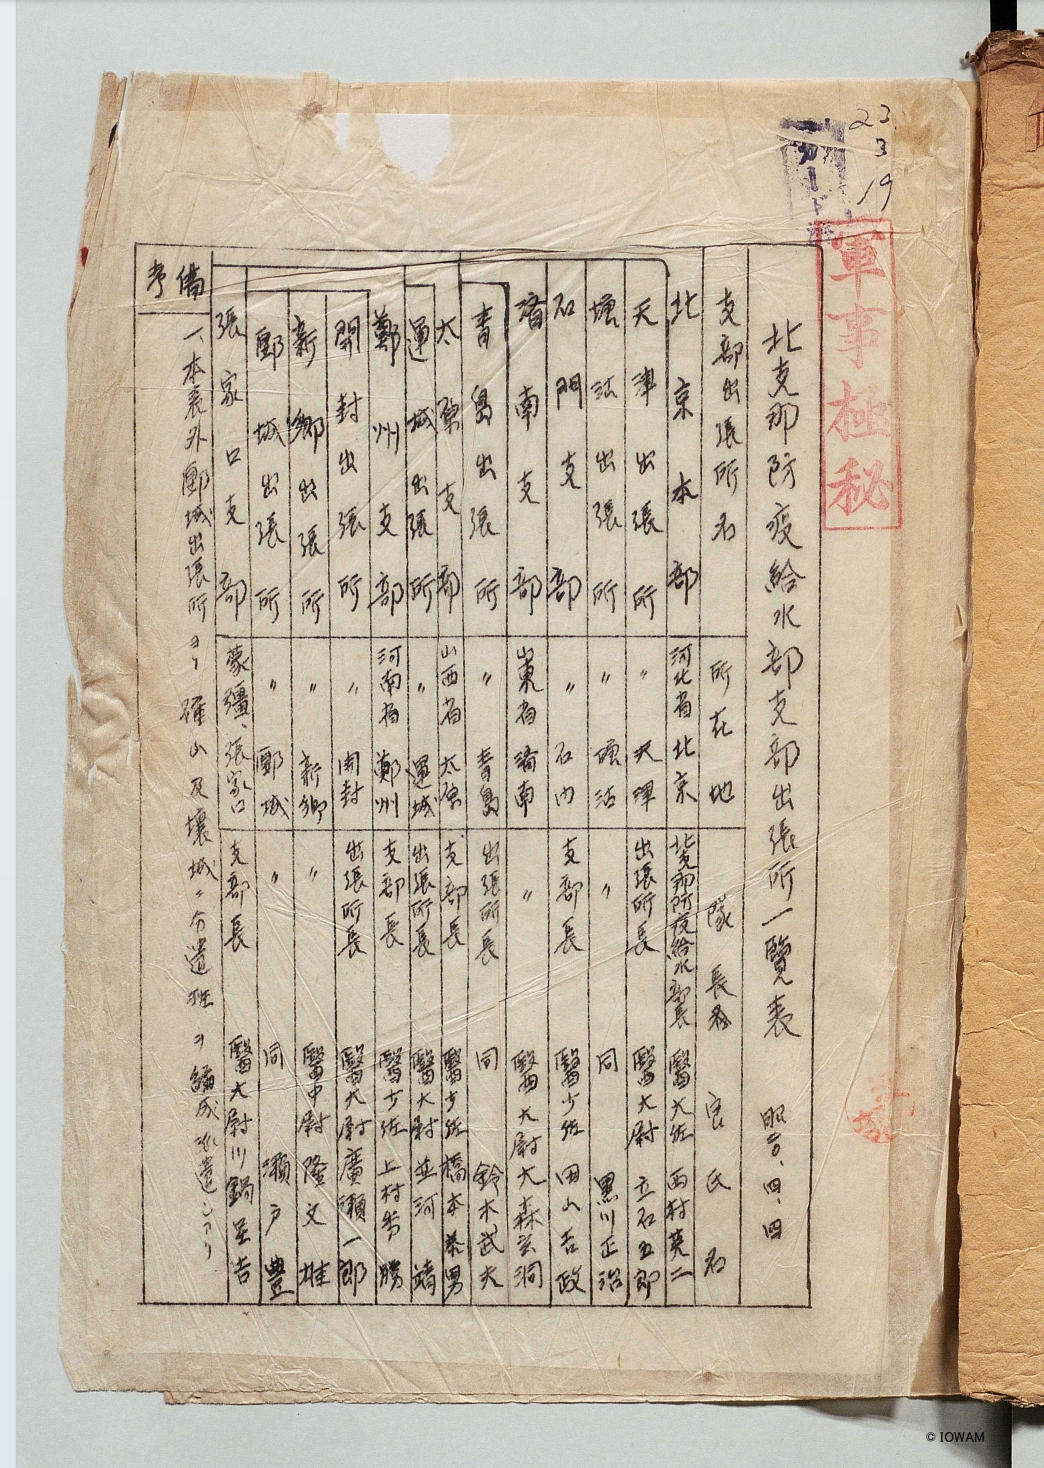 23
3
19
軍事極秘
北支那防疫給水部支部出張所一覧表 昭二〇、四、四
支部出張所名 所在地 隊長 官氏名
北京本部 河北省 北京 北支那防疫給水部長 醫大佐 西村英二
天津出張所 〃 天津 出張所長 醫大尉 立石五郎
塘沽出張所 〃 塘沽 〃 同 黒川正治
石門支部 〃 石内 支部長 醫少佐 田山吉政
濟南支部 山東省 済南 〃 醫大尉 大森玄洞
青島出張所 〃 青島 出張所長 同 鈴木武夫
太原支部 山西省 太原 支部長 醫少佐 橋本 男
運城出張所 〃 運城 出張所長 醫大尉 並河 靖
鄭州支部 河南省 鄭州 支部長 醫少佐 上村秀勝
開封出張所 〃 開封 出張所長 醫大尉 廣瀬一郎
新郷出張所 〃 新郷 〃 醫中尉 隆文雄
郾城出張所 〃 郾城 〃 同 瀬戸豊
張家口支部 蒙疆、張家口 支部長 醫大尉 川鍋里吉
備考
一、本表外郾城出張所ヨリ確山及壊城ニ分遣班ヲ編成派遣シアリ
© IOWAM